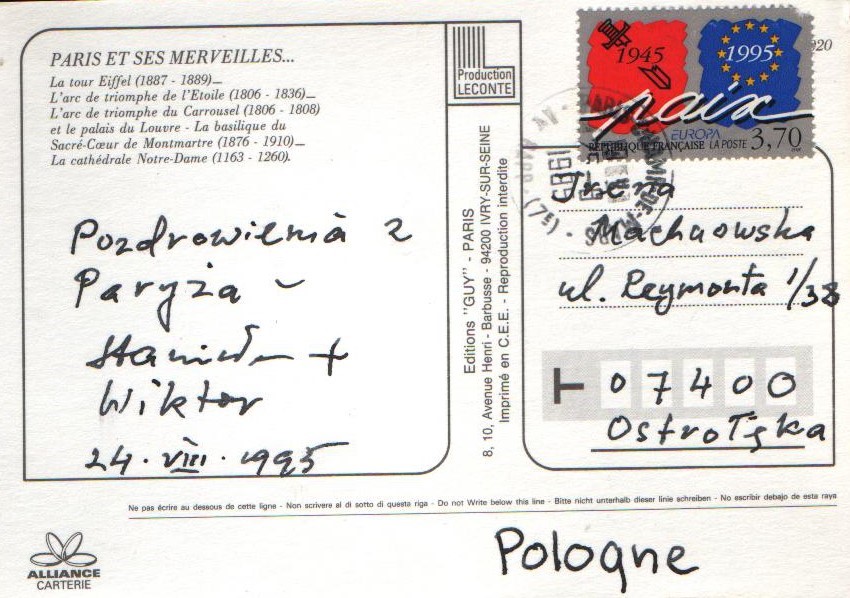 PARIS ET SES MERVEILLES...
La tour Eiffel (1887 - 1889)_
L'arc de triomphe de l'Etoile (1806 - 1836)_
L'arc de triomphe du Carrousel (1806 - 1808)
et le palais du Louvre - La basilique du
Sacré-Cœur de Montmartre (1876 - 1910)_
La cathédrale Notre-Dame (1163 - 1260).
Pozdrowienia z
Paryża -
+
Wiktor
24. VIII. 1995
Production
LECONTE
Editions "GUY" - PARIS
8, 10, Avenue Henri - Barbusse - 94200 IVRY-SUR-SEINE
Imprimé en C.E.E. - Reproduction interdite
1945
1995
paix
EUROPA
RÉPUBLIQUE FRANÇAISE LA POSTE 3,70
920
Irena
Machnowska
ul. Reymonta 1/38
07400
Ostrołęka
Ne pas écrire au dessous de cette ligne - Non scrivere al di sotto di questa riga - Do not Write below this line - Bitte nicht unterhalb dieser linie schreiben - No escribir debajo de esta raya
ALLIANCE
CARTERIE
Pologne